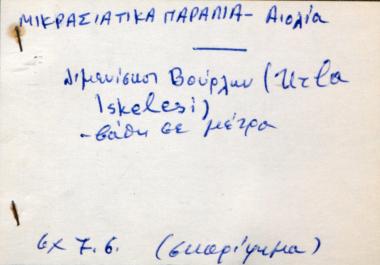 ΜΙΚΡΑΣΙΑΤΙΚΑ ΠΑΡΑΛΙΑ - Αιολία
Λιμενίσκοι Βούρλων (Urla
Iskelesi)
- βάθη σε μέτρα
σχ 7.6. (σκαρίφημα)